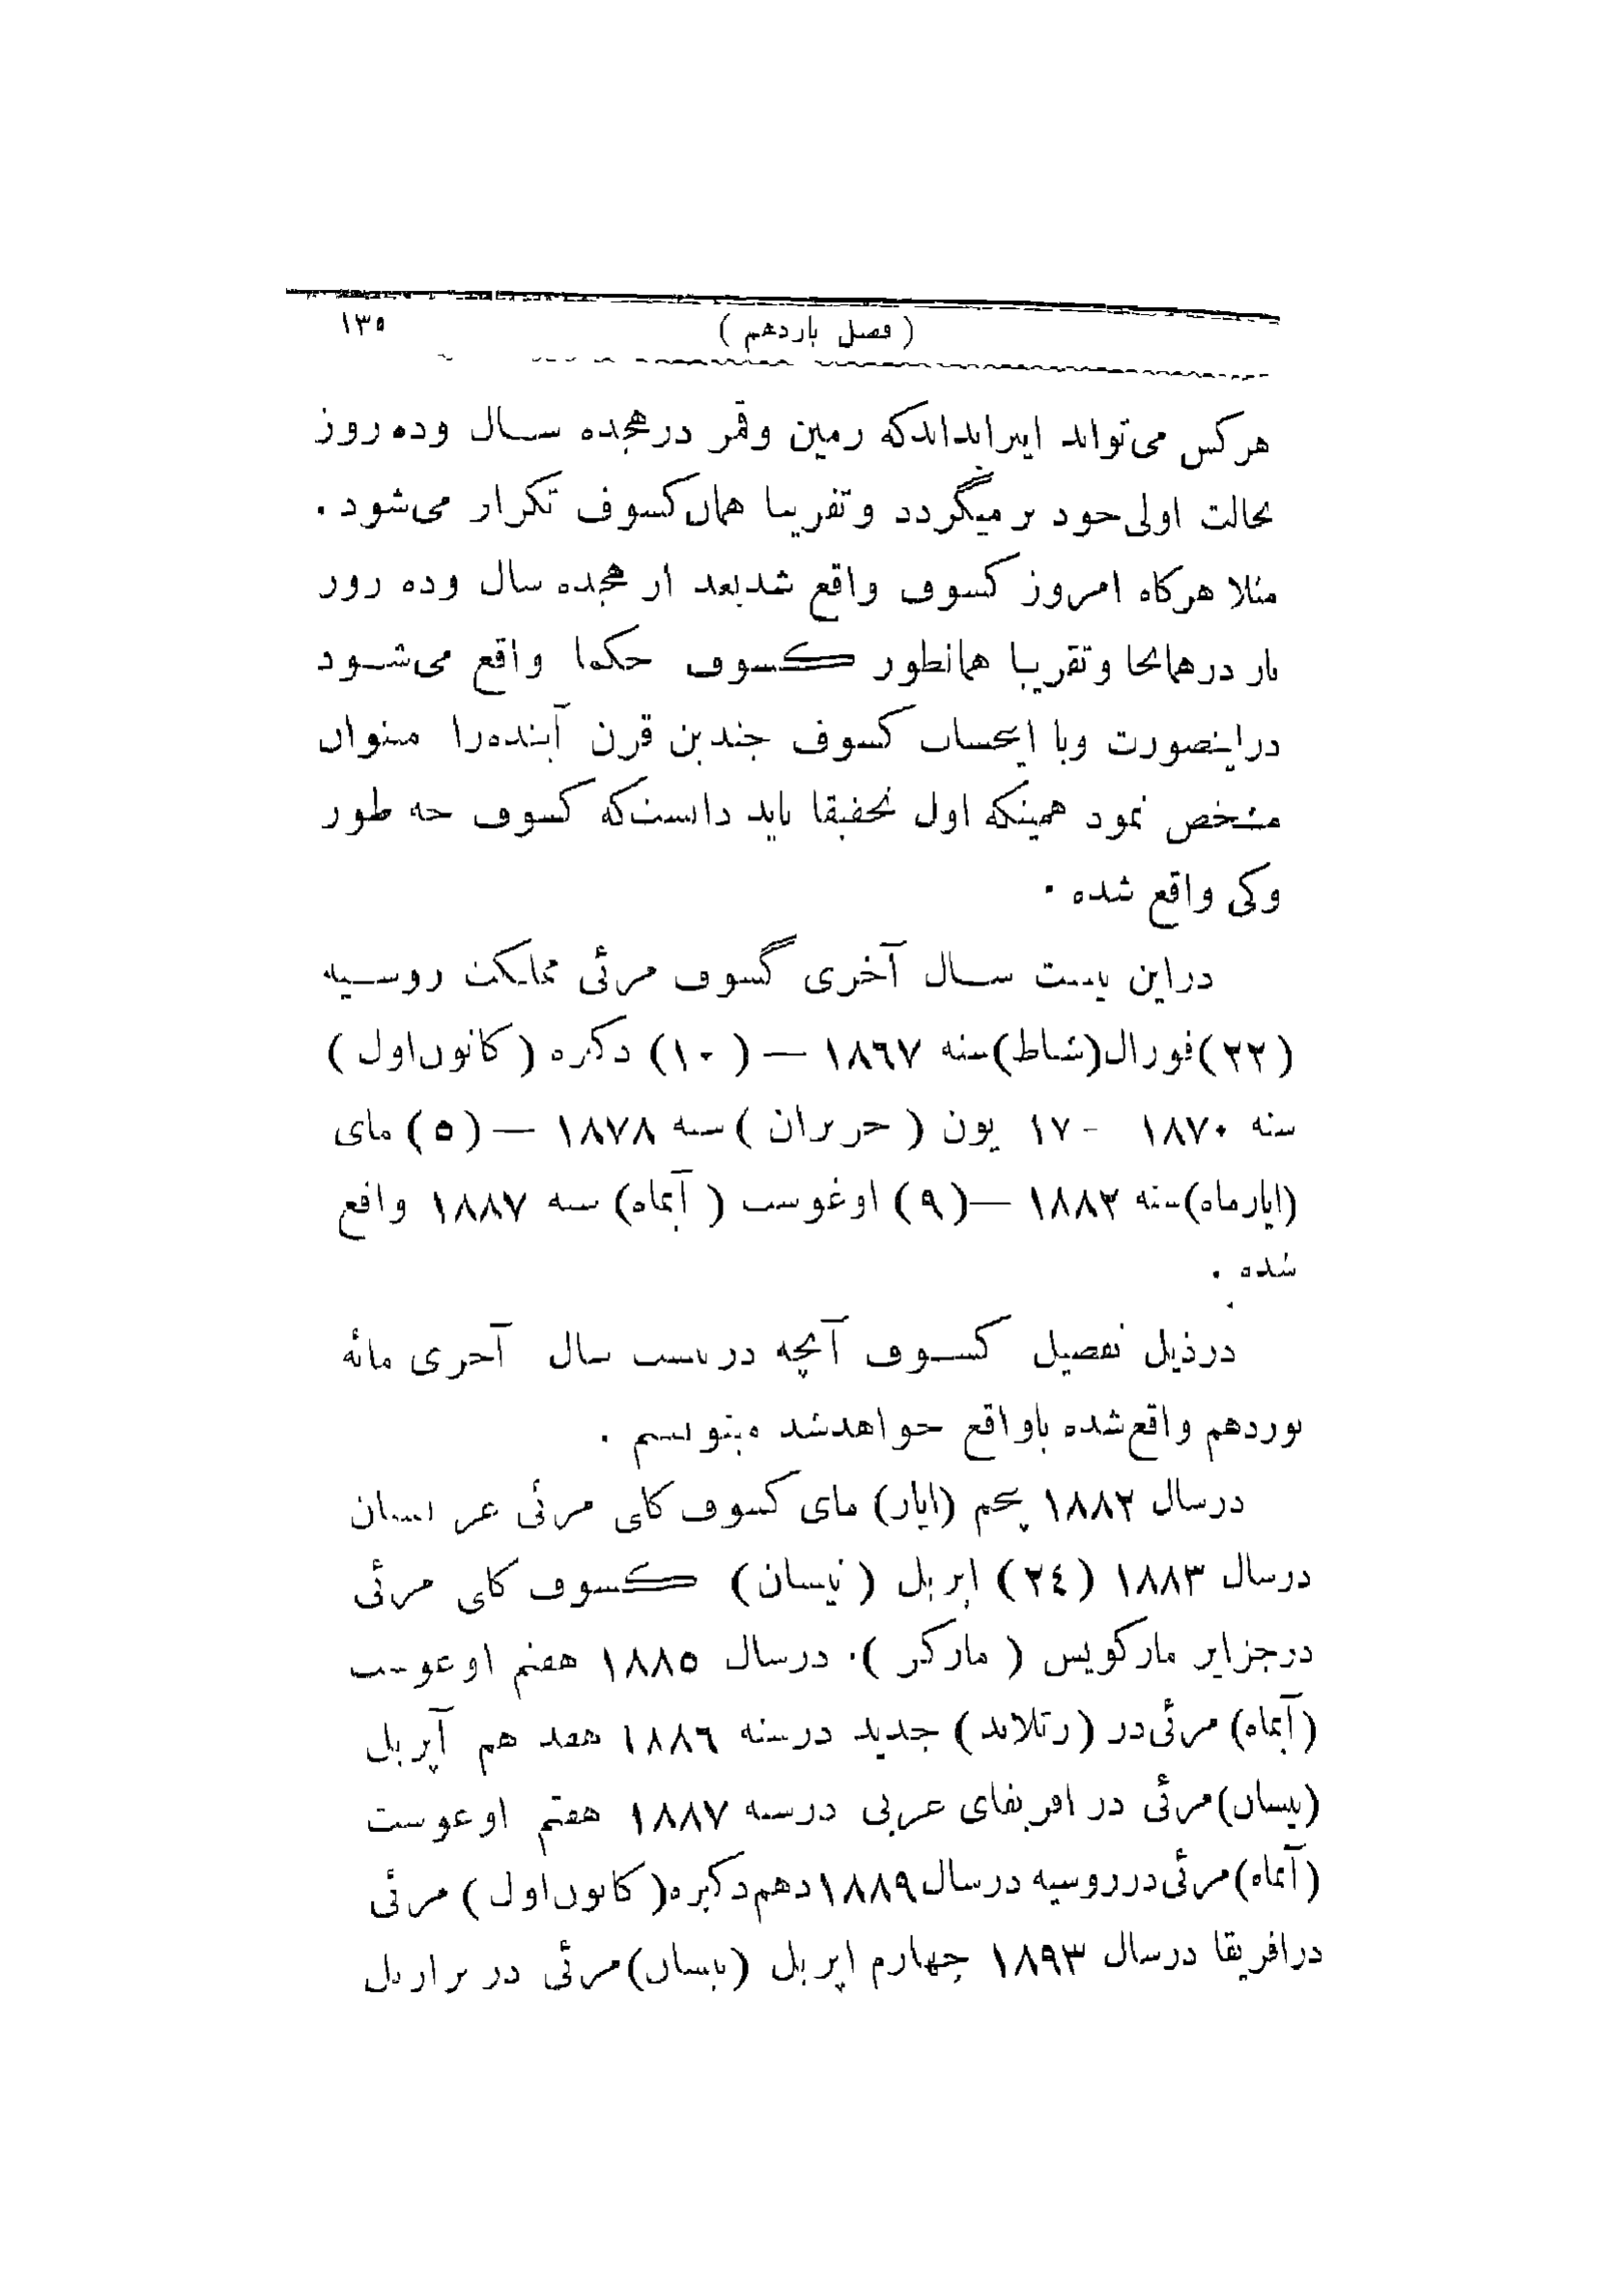 ( فصل یازدهم ) ١٣٥
هرکس می‌تواند اینرابداندکه زمین وقمر درهجده سال وده روز
بحالت اولی خود بر میگردد وتقریبا همان کسوف تکرار می‌شود .
مثلا هرکاه امروز کسوف واقع شدبعد از هجده سال وده روز
باز درهمانجا وتقریبا همانطور کسوف حکما واقع می‌شود
دراینصورت وبا اینحساب کسوف چندین قرن آینده‌را میتوان
مشخص نمود همینکه اول تحقیقا باید دانست‌که کسوف چه طور
وکی واقع شده .
دراین بیست سال آخری گسوف مرئی مملکت روسیه
(٢٢)فورال(شباط)سنه ١٨٦٧ — (١٠) دکبره (کانون‌اول)
سنه ١٨٧٠ - ١٧ یون ( حزیران ) سنه ١٨٧٨ — (٥) مای
(ایارماه)سنه ١٨٨٢ —(٩) اوغوست ( آبماه) سنه ١٨٨٧ واقع
شده .
درذیل تفصیل کسوف آنچه دربیست سال آخری مائه
نوزدهم واقع‌شده یاواقع خواهدشد مینویسیم .
درسال ١٨٨٢ پنجم (ایار) مای کسوف کلی مرئی عربستان
درسال ١٨٨٣ (٢٤) اپریل ( نیسان) کسوف کلی مرئی
درجزایر مارکویس ( مارکز ). درسال ١٨٨٥ هفتم اوغوست
(آبماه) مرئی‌در (زتلاند) جدید درسنه ١٨٨٦ هفد هم آپریل
(نیسان)مرئی در افریقای غربی درسنه ١٨٨٧ هفتم اوغوست
(آبماه)مرئی‌درروسیه درسال١٨٨٩دهم‌دکبره(کانون‌اول) مرئی
درافریقا درسال ١٨٩٣ چهارم اپریل (نیسان)مرئی در برازیل